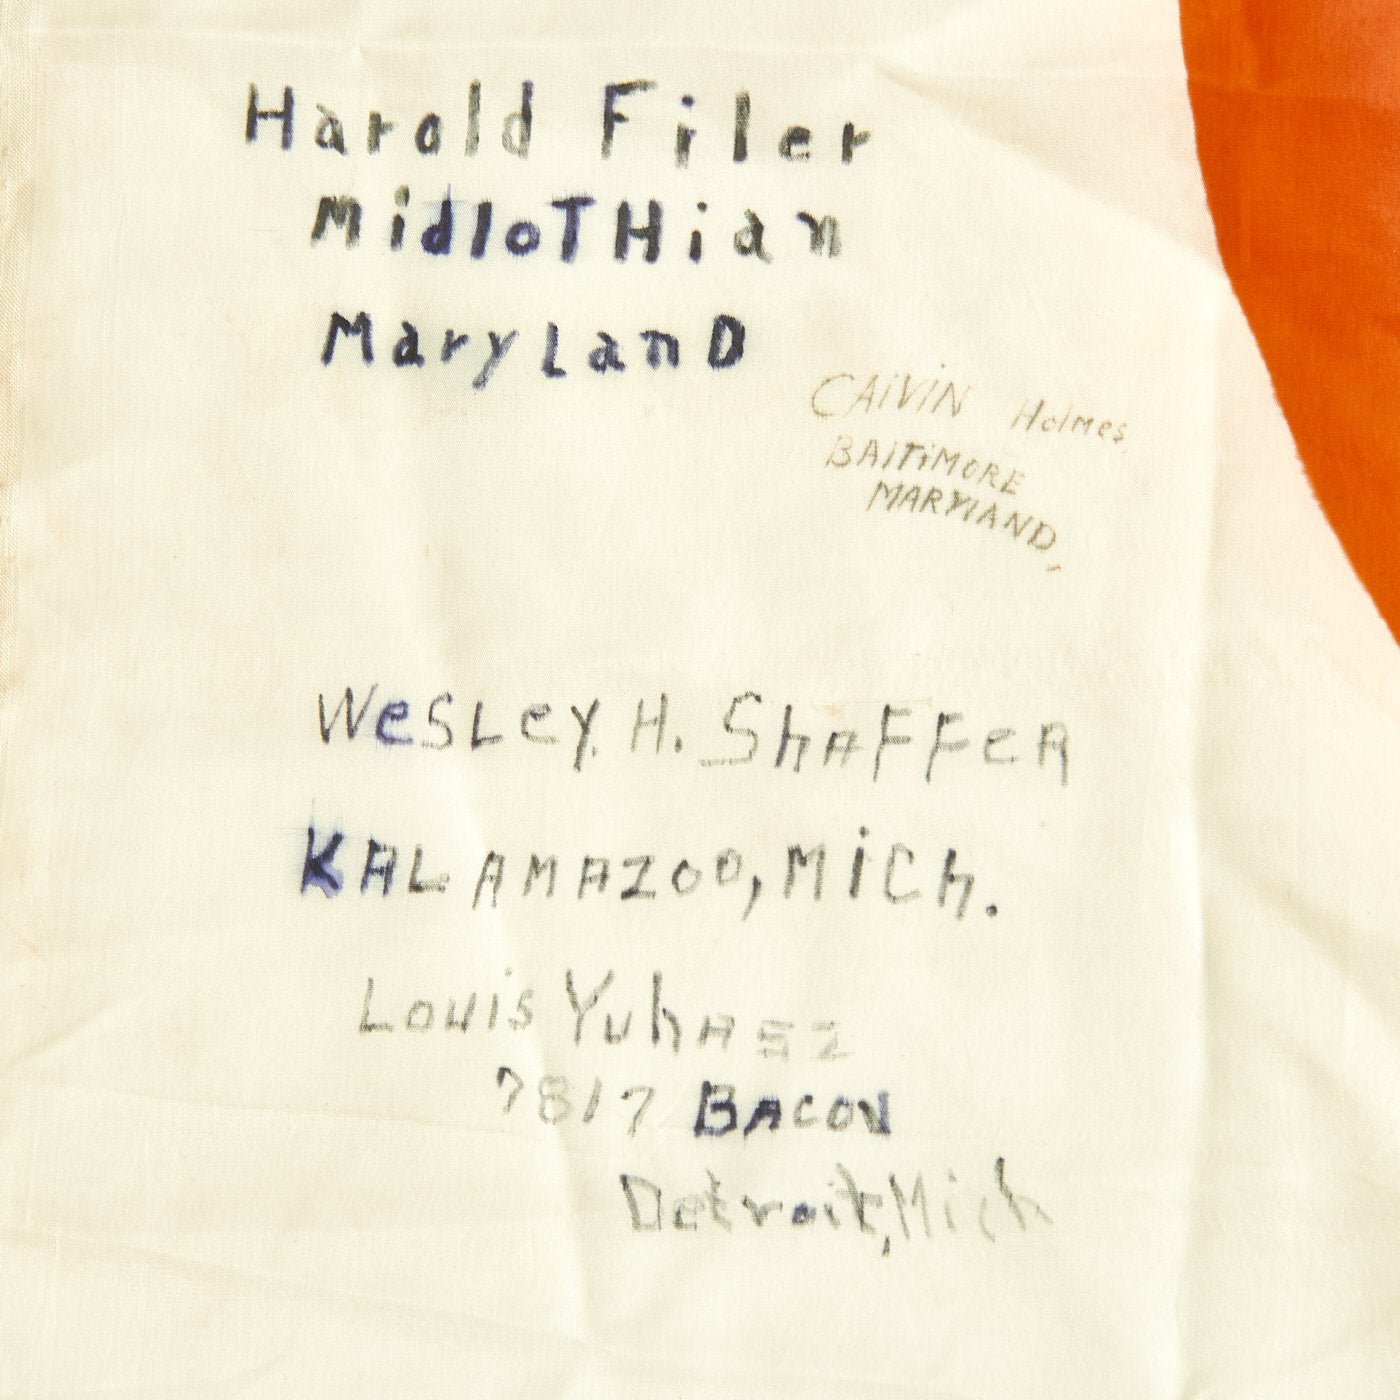 Harold Filer
MidloTHian
MaryLanD
CAlVIN Holmes
BAlTiMORE
MARYlAND,
WesLey. H. ShAFFeR
KALAMAZOO, MiCh.
Louis Yuhasz
7817 BACON
Detroit, Mich